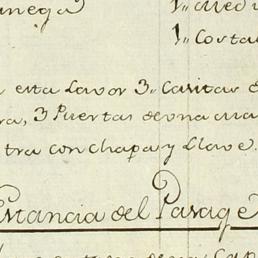 anega
1,, Med
1,, Costa
esta Lavor 3,, Caritas
ra, 3 Puertas de una ma
tra con chapa y Llave.
Estancia del Parage